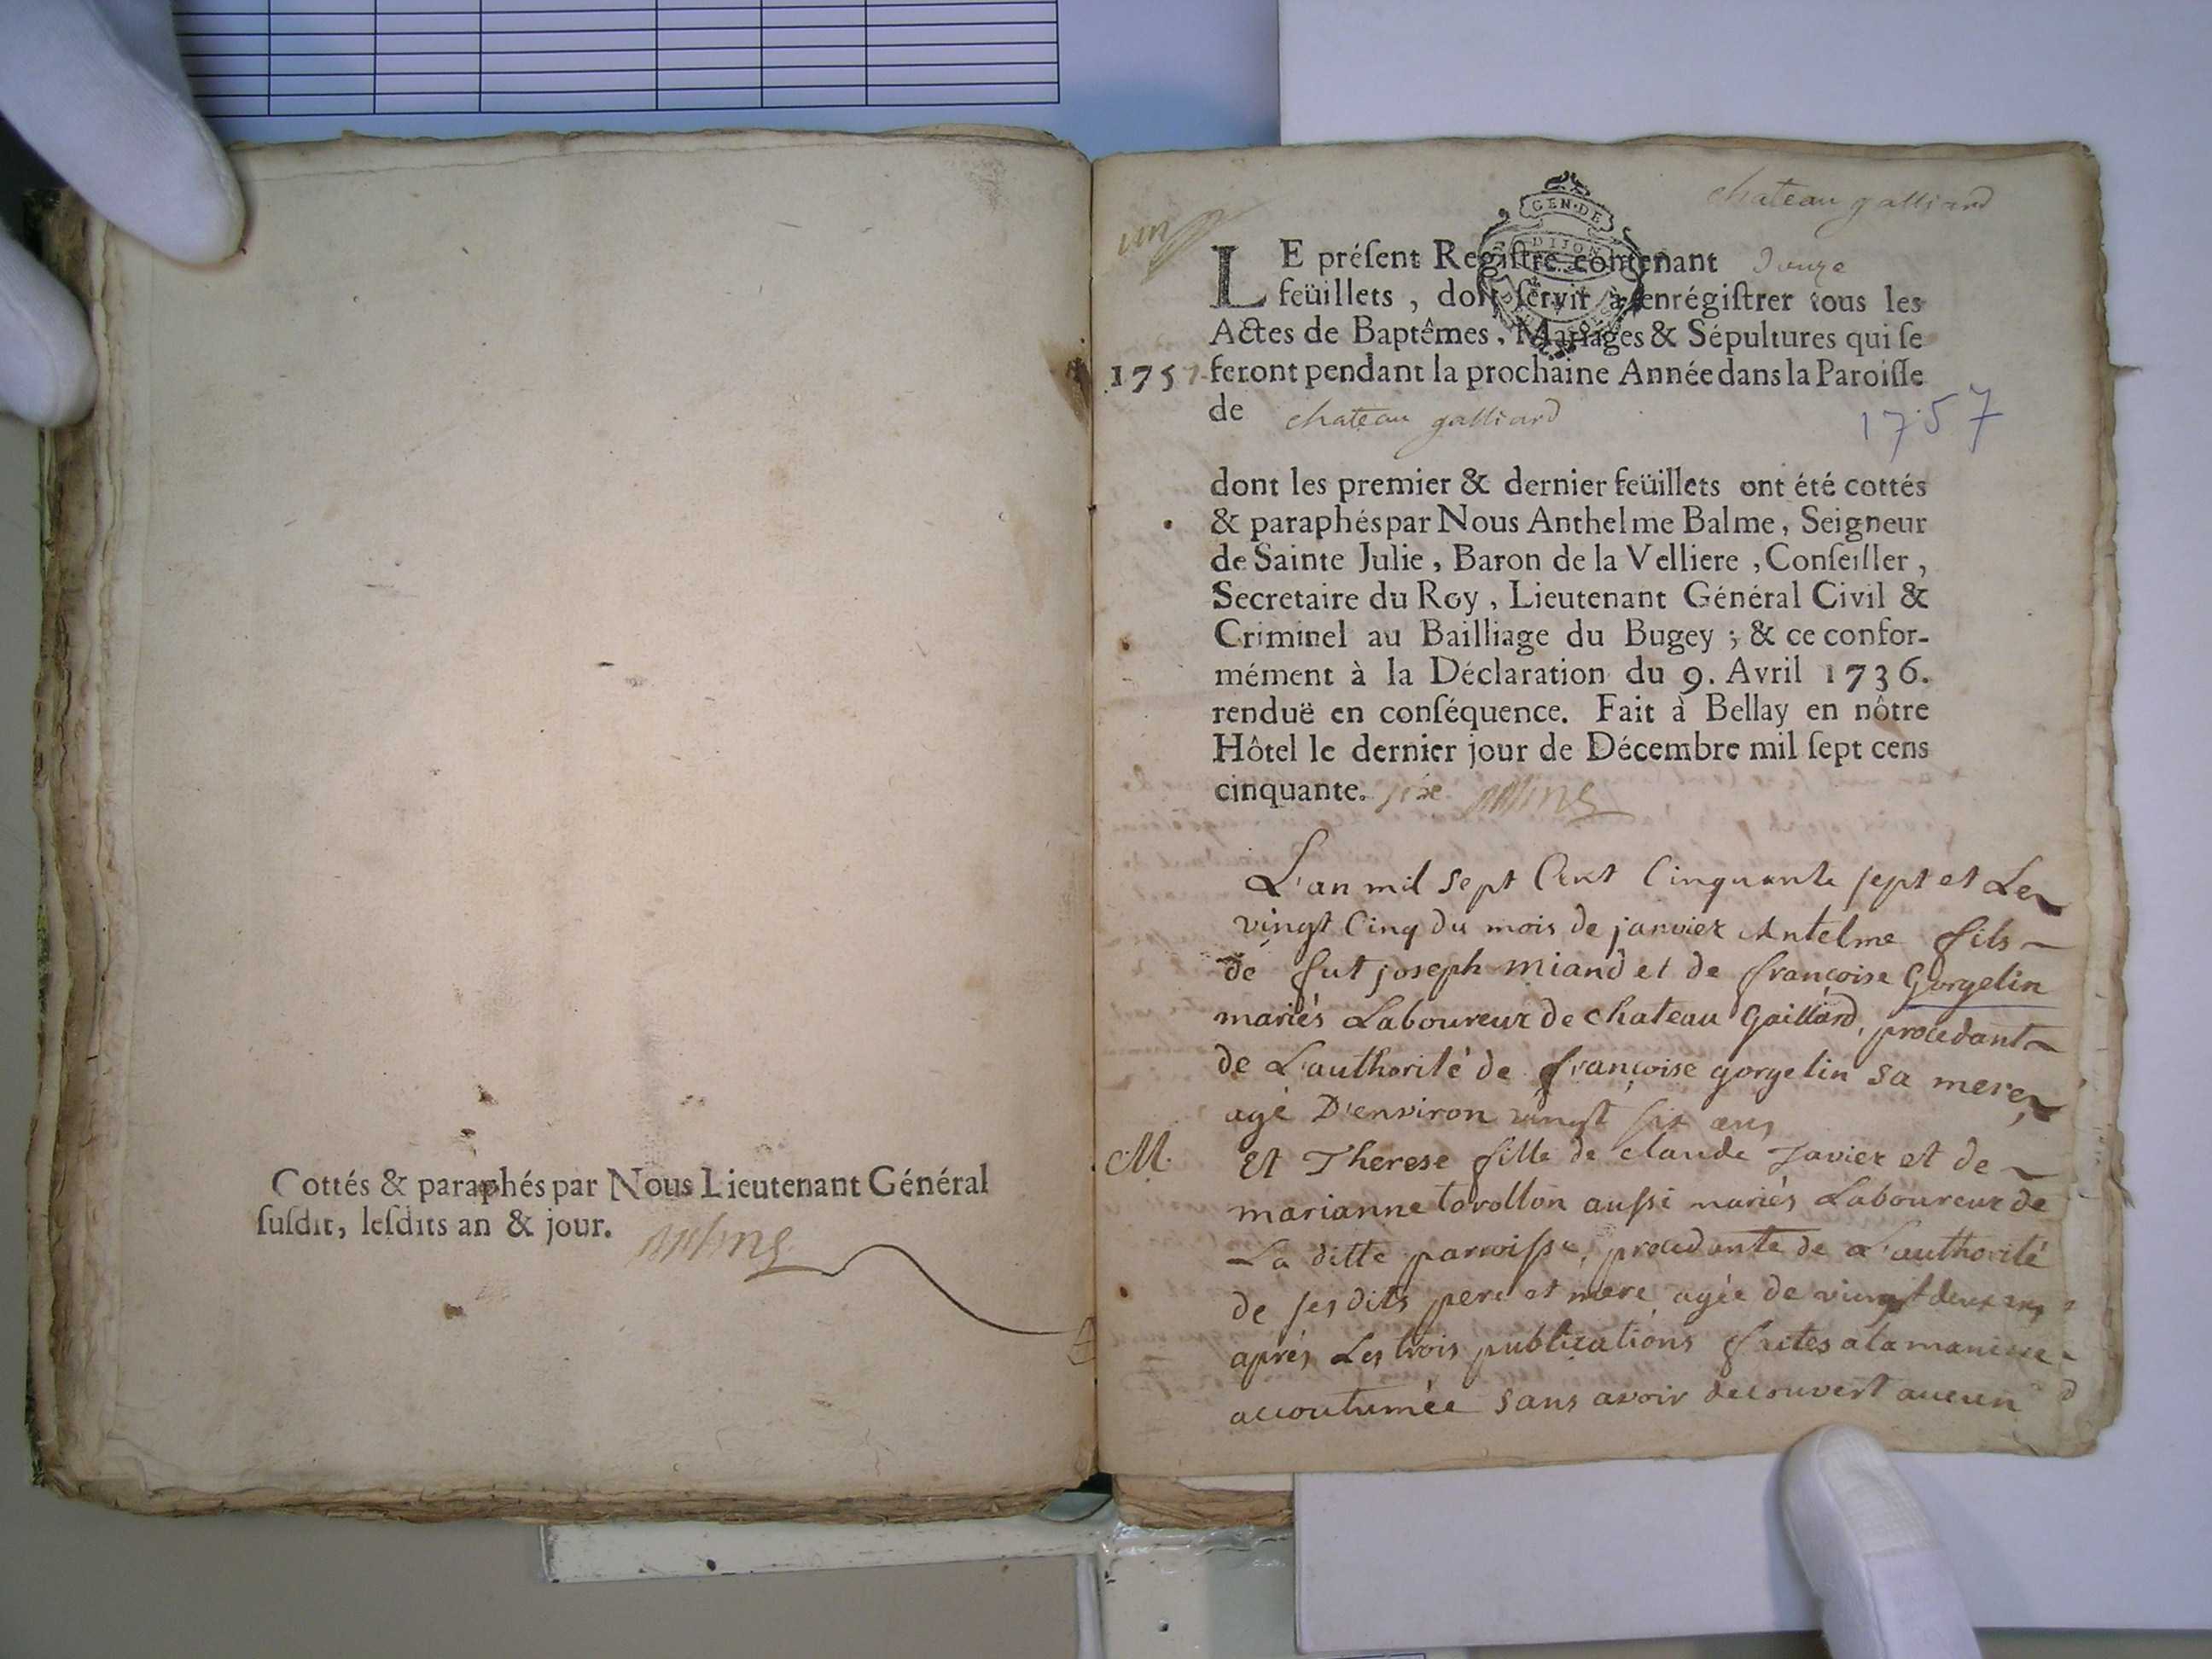 Cottés & paraphés par Nous Lieutenant Général
ſuſdit, leſdits an & jour.
chateau galliard
un
GEN·DE
DIJON
LE préſent Regiſtre contenant douze
feüillets, doit ſervir à enrégiſtrer tous les
Actes de Baptêmes, Mariages & Sépultures qui ſe
1757 feront pendant la prochaine Année dans la Paroiſſe
de chateau galliard
1757
dont les premier & dernier feüillets ont été cottés
& paraphés par Nous Anthelme Balme, Seigneur
de Sainte Julie, Baron de la Velliere, Conſeiller,
Secretaire du Roy, Lieutenant Général Civil &
Criminel au Bailliage du Bugey; & ce confor-
mément à la Déclaration du 9. Avril 1736.
renduë en conſéquence. Fait à Bellay en nôtre
Hôtel le dernier jour de Décembre mil ſept cens
cinquante.
L'an mil sept Cent Cinquante sept et Le
vingt Cinq du mois de janvier Antelme fils
de fut joseph miand et de françoise Gorgelin
mariés Laboureur de chateau Gaillard, procedant
de L'authorité de françoise gorgelin sa mere,
agé D'environ vingt six ans
M. Et Therese fille de claude Javier et de
marianne torollon aussi mariés Laboureur de
La ditte paroisse, procedante de L'authorité
de ses dits pere et mere agée de vingt deux ans
aprés Les trois publications faites a la maniere
accoutumée sans avoir decouvert aucun